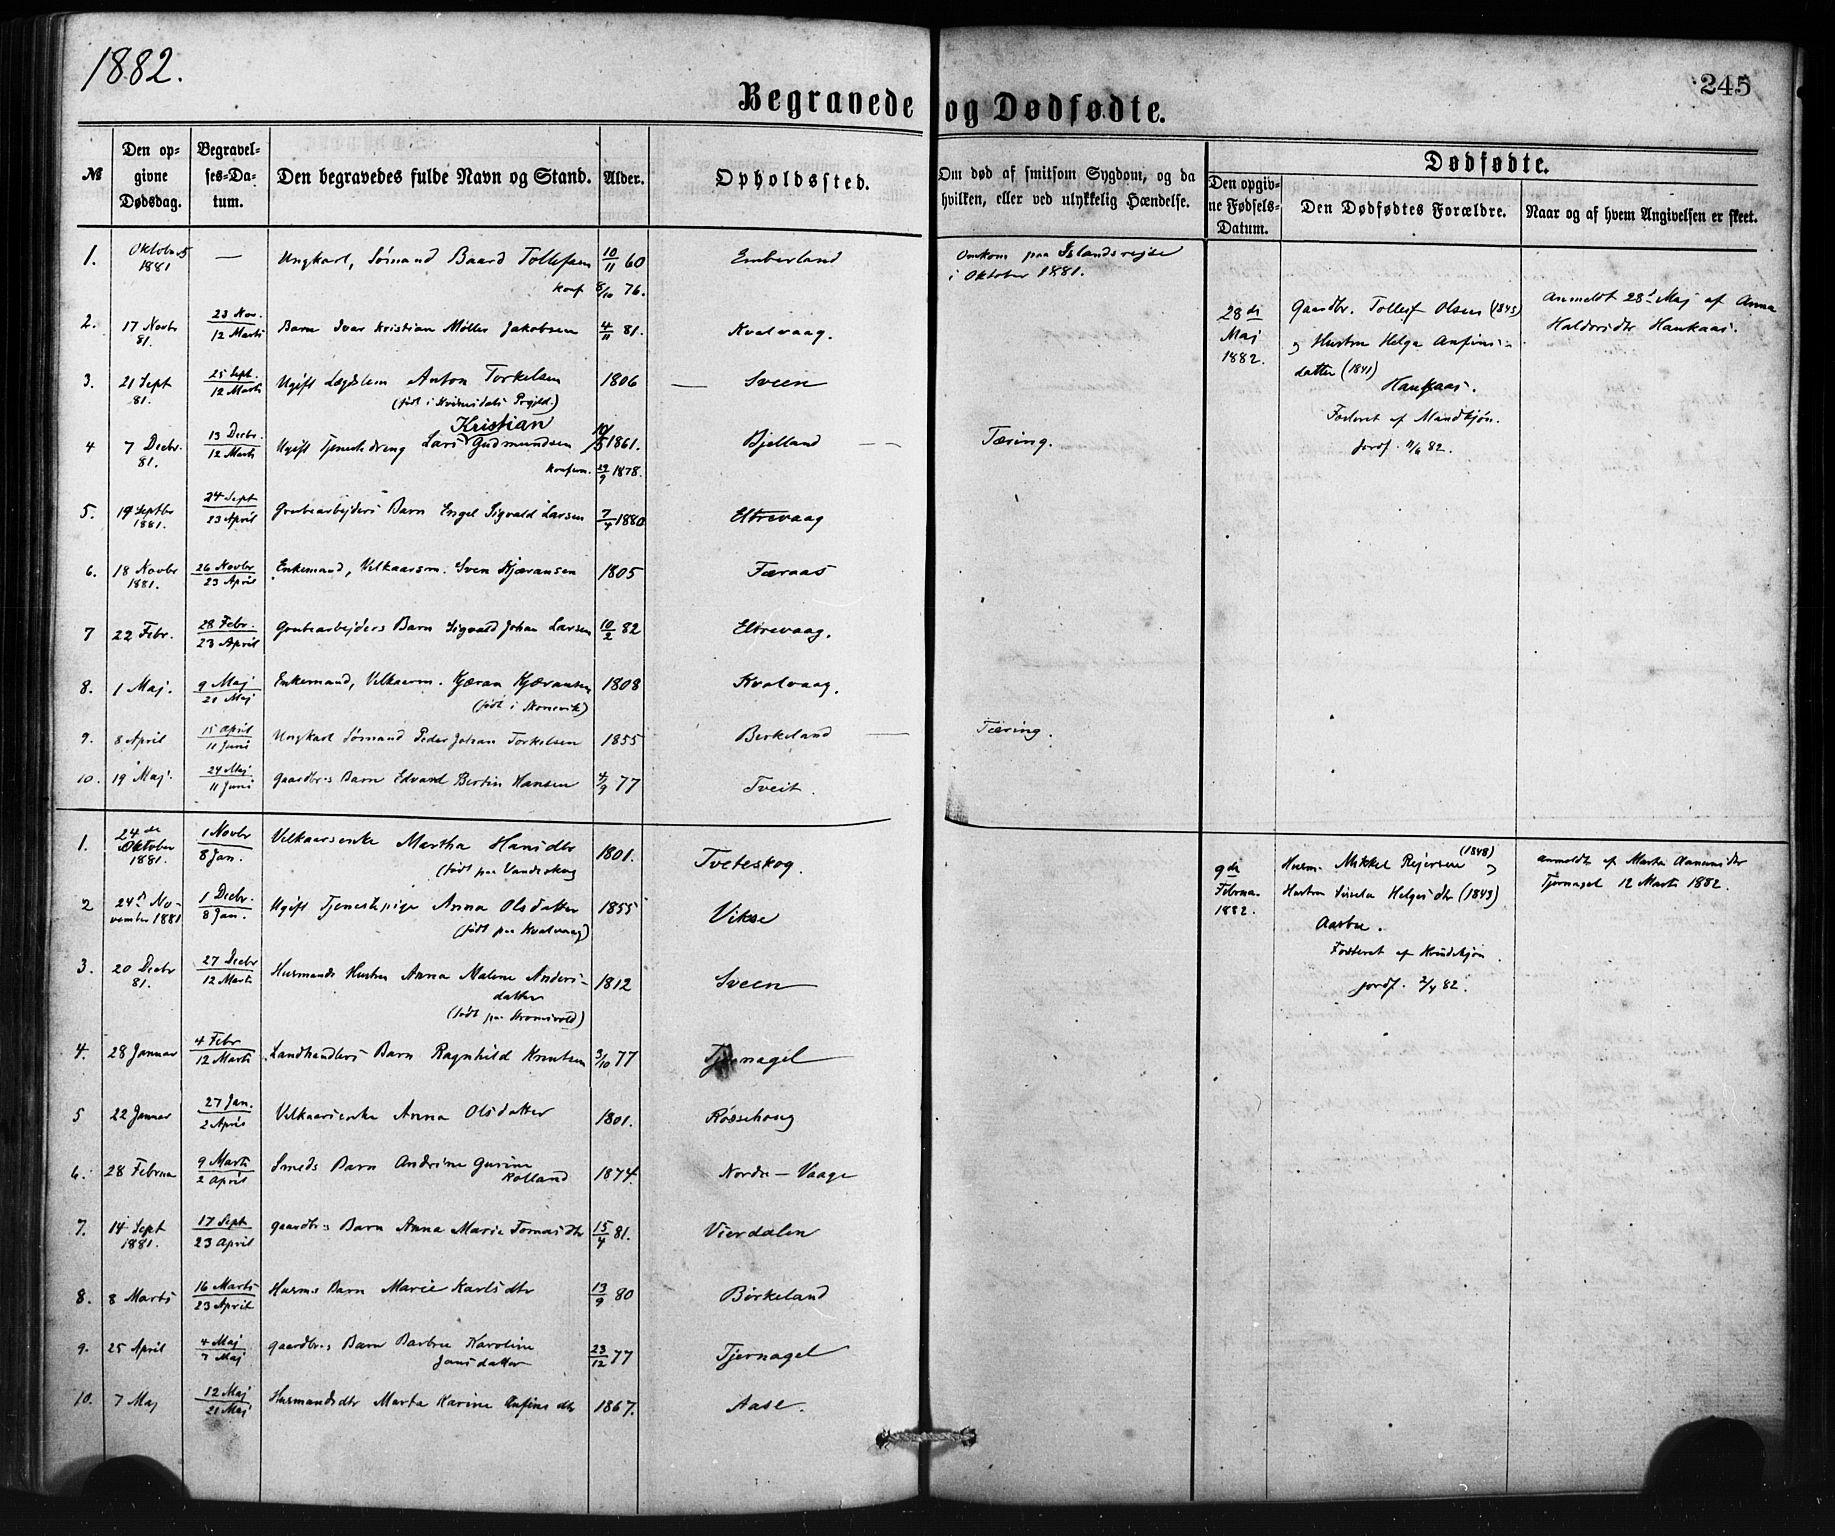 1882.
245
Begravede og Dødfødte.
№
Den opgivne Dødsdag.
Begravelses-Datum.
Den begravedes fulde Navn og Stand.
Alder.
Opholdssted.
Om død af smitsom Sygdom, og da hvilken, eller ved ulykkelig Hændelse.
Dødfødte.
Den opgivne Fødsels-Datum.
Den Dødfødtes Forældre.
Naar og af hvem Angivelsen er skeet.
1. Oktober 1881 — Ungkarl, Sømand Baard Tollefsen 10/11 60 Emberland Omkom paa Islandsrejse
konf 8/10 76. i Oktober 1881.
2. 17 Novbr 81. 23 Nov. 12 Marts Barn Ivar Kristian Møller Jakobsen 4/11 81. Kvalvaag.
28de Maj 1882. Gaardbr. Tollef Olsen (1845)
Hustru Helga Anfins-
datter (1841)
Haukaas.
Fosteret af Mandkjøn.
jordf. 11/6 82.
Anmeldt 28d Maj af Anna
Haldorsdtr Haukaas.
3. 21 Sept 81. 25 Sept. 12 Marts Ugift Lægdslem Anton Torkelsen 1806 — Sveen
(født i Prgjld.)
4 7 Decbr. 81. 13 Decbr. 12 Marts Ugift Tjenestedreng Lars Kristian Gudmundsen 1861. Bjelland — Tæring.
konfirm. 29/9 1878.
5. 19 Septbr 1881. 24 Sept 23 April Grubearbejders Barn Engel Sigvald Larsen 7/4 1880 Eltrevaag
6. 18 Novbr 1881. 26 Novbr 23 April Enkemand, Velkaarsm. Sven Kjæransen 1805 Færaas
7 22 Febr. 28 Febr. 23 April Grubearbejders Barn Sigvald Johan Larsen 10/2 82 Eltrevaag.
8. 1 Maj. 9 Maj 21 Maj Enkemand, Velkaarm. Kjæran Kjæransen 1808 Kvalvaag.
(født i Skonevik)
9. 8 April 15 April 11 Juni Ungkarl Sømand Peder Johan Torkelsen 1855 Birkeland — Tæring.
10. 19 Maj. 24 Maj 11 Juni Gaardbrs Barn Edvard Bertin Hansen 4/9 77 Tveit.
1. 24de Oktober 1881. 1 Novbr 8 Jan. Velkaarsenke Martha Hansdtr 1801. Tveteskog.
(født paa Vandaskog
9de Februa- 1882. Husm. Mikkel Rejersen (1848)
Hustru Helgesdtr (1843)
Aarbu.
Fosteret af Kvindekjøn.
jordf. 2/4 82.
anmeldt af Marta
Tjernagel 12 Marts 1882.
2 24d November 1881 1 Decbr. 8 Jan. Ugift Tjenestepige Anna Olsdatter 1855 Vikse
(født paa Kvalvaag)
3. 20 Decbr 81. 27 Decbr 12 Marts Husmands Hustru Anna Malene Anders-
datter 1812 Sveen
4. 28 Januar 4 Febr 12 Marts Landhandlers Barn Ragnhild Knutsen 3/10 77 Tjernagel
5 22 Januar 27 Jan. 2 April Velkaarsenke Anna Olsdatter 1801. Røsehoug
6. 28 Februa 9 Marts 2 April Smeds Barn Andrine Gurine
Rolland 1874. Nordre-Vaage
7. 14 Sept 1881. 17 Sept 23 April Gaardbrs Barn Anna Marie Tomasdtr 15/4 81. Vierdalen
8. 8 Marts 16 Marts 23 April Husms Barn Marie Karlsdtr 13/9 80 Børkeland
9. 25 April 4 Maj 7 Maj Gaardbrs Barn Barbru Karoline
Jansdatter 23/12 77 Tjernagel
10. 7 Maj 12 Maj 21 Maj Husmandsdtr Marta Karine Anfinsdtr 1867. Aase.